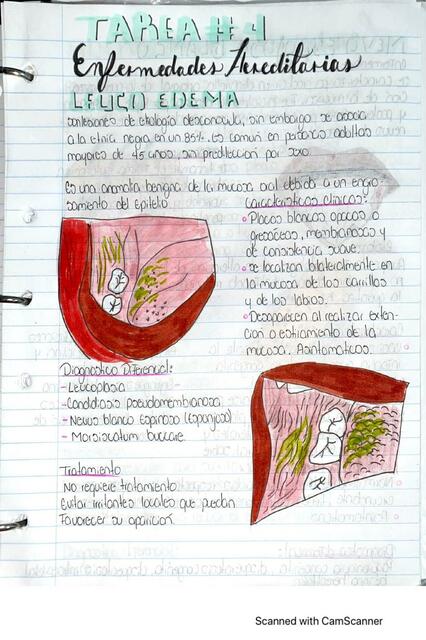 TAREA #4
Enfermedades Hereditarias
LEUCO EDEMA
son lesiones de etiología desconocida, sin embargo se asocia
a la etnia negra en un 85%. Es común en personas adultas
mayores de 45 años, sin predilección por sexo.
Es una anomalía benigna de la mucosa oral debida a un engro-
samiento del epitelio.
Características clínicas:
• Placas blancas opacas o
grisáceas, membranosas y
de consistencia suave.
• Se localizan bilateralmente en
la mucosa de los carrillos
y de los labios.
• Desaparecen al realizar exten-
ción o estiramiento de la
mucosa. Asintomáticos.
Diagnóstico Diferencial:
- Leucoplasia
- Candidiasis pseudomembranosa
- Nevus blanco esponjoso (esponjoso)
- Morsicatum buccare.
Tratamiento
No requiere tratamiento
Evitar irritantes locales que puedan
favorecer su aparición.
Scanned with CamScanner